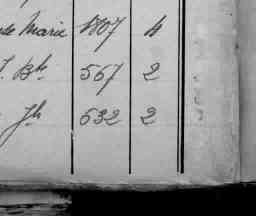 de Marie 1807 4
J. Bte 567 2
Jh 632 2